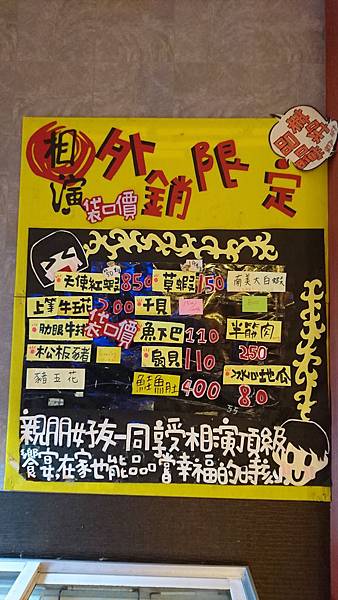 相演
外銷限定
袋口價
天使紅蝦 850 草蝦 150 南美大白蝦
上等牛五花 200 干貝
肋眼牛排 袋口價 魚下巴 110 半筋肉 250
松板豬 扇貝 110 冰心地瓜 80
豬五花 鮭魚肚 400
親朋好友一同享受相演頂級
饗宴在家也能品嘗幸福的時刻